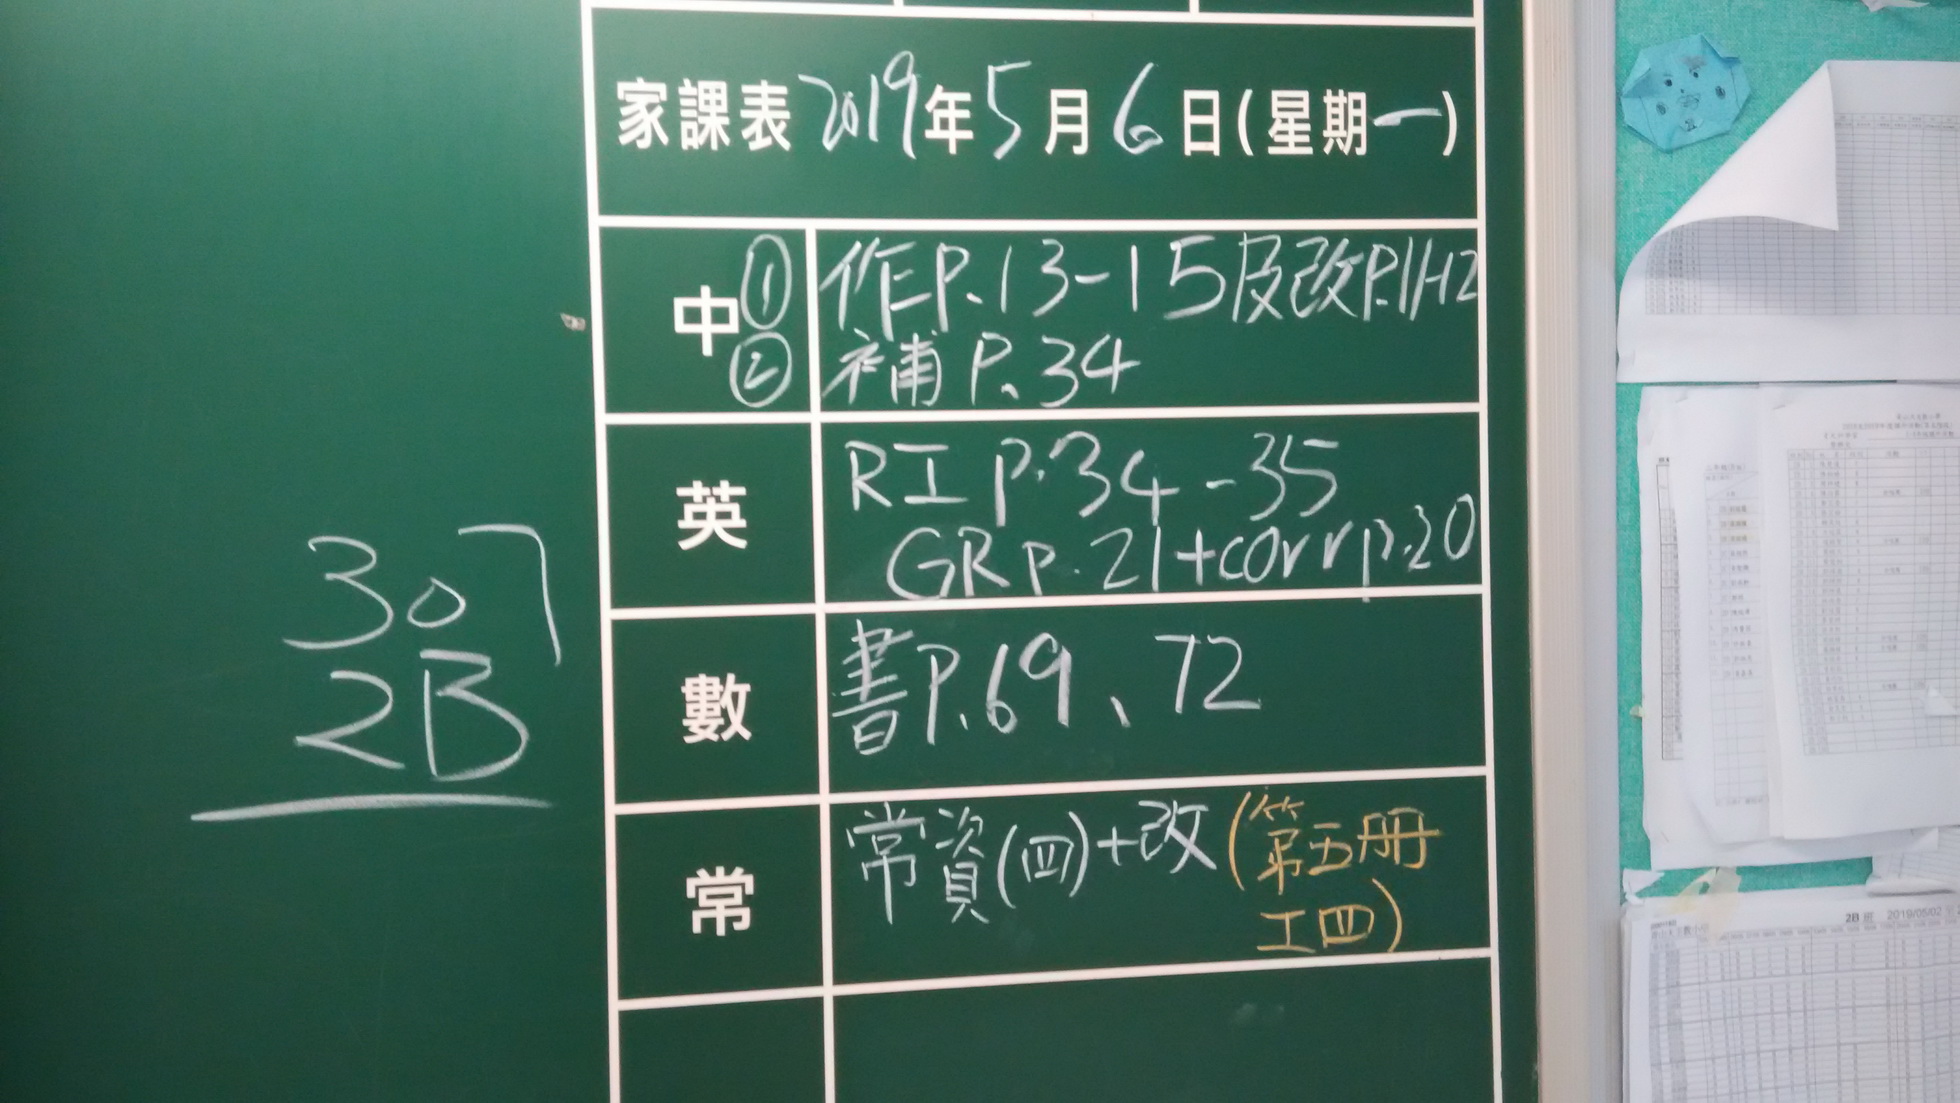 家課表2019年5月6日(星期一)
中① 作P.13-15及改P.11-12
② 補P.34
英 RI p.34-35
GR p.21+corr p.20
數 書P.69、72
常 常資(四)+改(第五册
工四)
307
2B
2B 班 2019/05/02